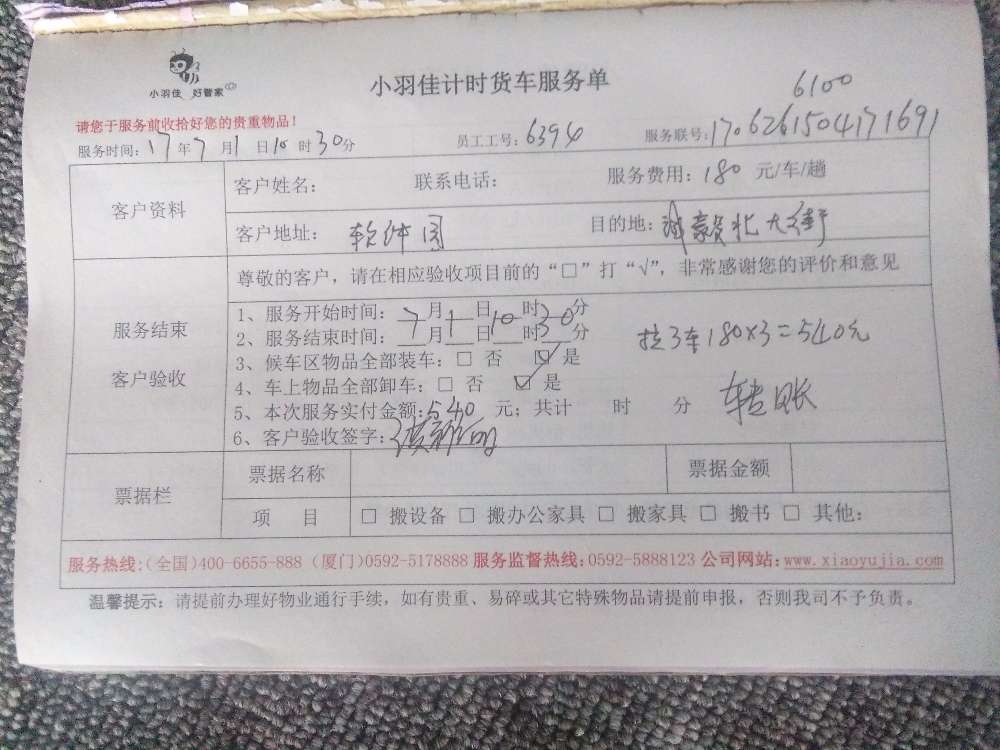 小羽佳 好管家
小羽佳计时货车服务单
6100
请您于服务前收拾好您的贵重物品！
服务时间：17年7月1日10时30分 员工工号：6394 服务联号：1706261504171691
客户资料
客户姓名： 联系电话： 服务费用：180 元/车/趟
客户地址： 软件园 目的地：诚毅北大街
尊敬的客户，请在相应验收项目前的“□”打“√”，非常感谢您的评价和意见
服务结束
客户验收
1、服务开始时间：7月1日10时30分
2、服务结束时间：__月__日__时__分
拉3车180×3=540元
3、候车区物品全部装车：□ 否 ☑ 是
4、车上物品全部卸车：□ 否 ☑ 是
5、本次服务实付金额：540 元；共计 时 分
转账
6、客户验收签字：
票据栏
票据名称 票据金额
项 目 □ 搬设备 □ 搬办公家具 □ 搬家具 □ 搬书 □ 其他：
服务热线：(全国)400-6655-888 (厦门)0592-5178888 服务监督热线：0592-5888123 公司网站：www.xiaoyujia.com
温馨提示：请提前办理好物业通行手续，如有贵重、易碎或其它特殊物品请提前申报，否则我司不予负责。